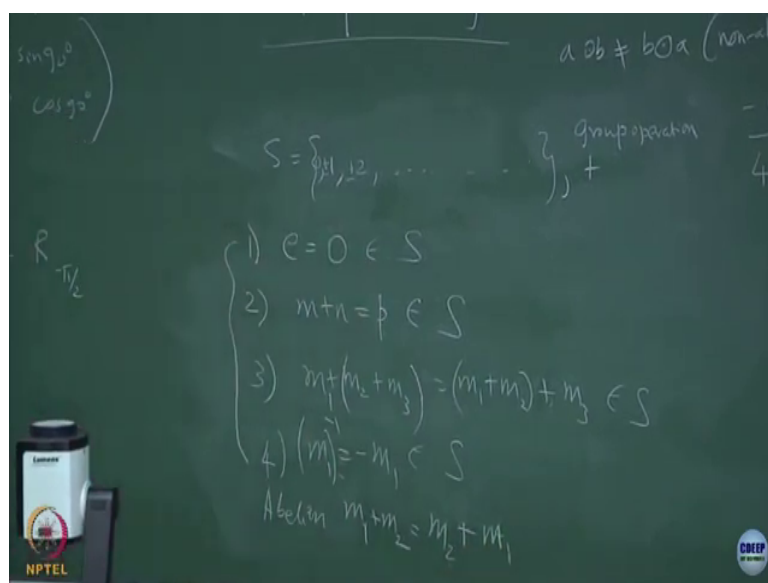 sin90°
cos90°
a⊙b ≠ b⊙a (non-
S = {0, ±1, ±2, ........ }, +
group operation
4
R -π/2
1) e = 0 ∈ S
2) m+n = p ∈ S
3) m₁+(m₂+m₃) = (m₁+m₂)+m₃ ∈ S
4) (m₁)⁻¹ = -m₁ ∈ S
Abelian m₁+m₂ = m₂+m₁
Lumens
NPTEL
CDEEP